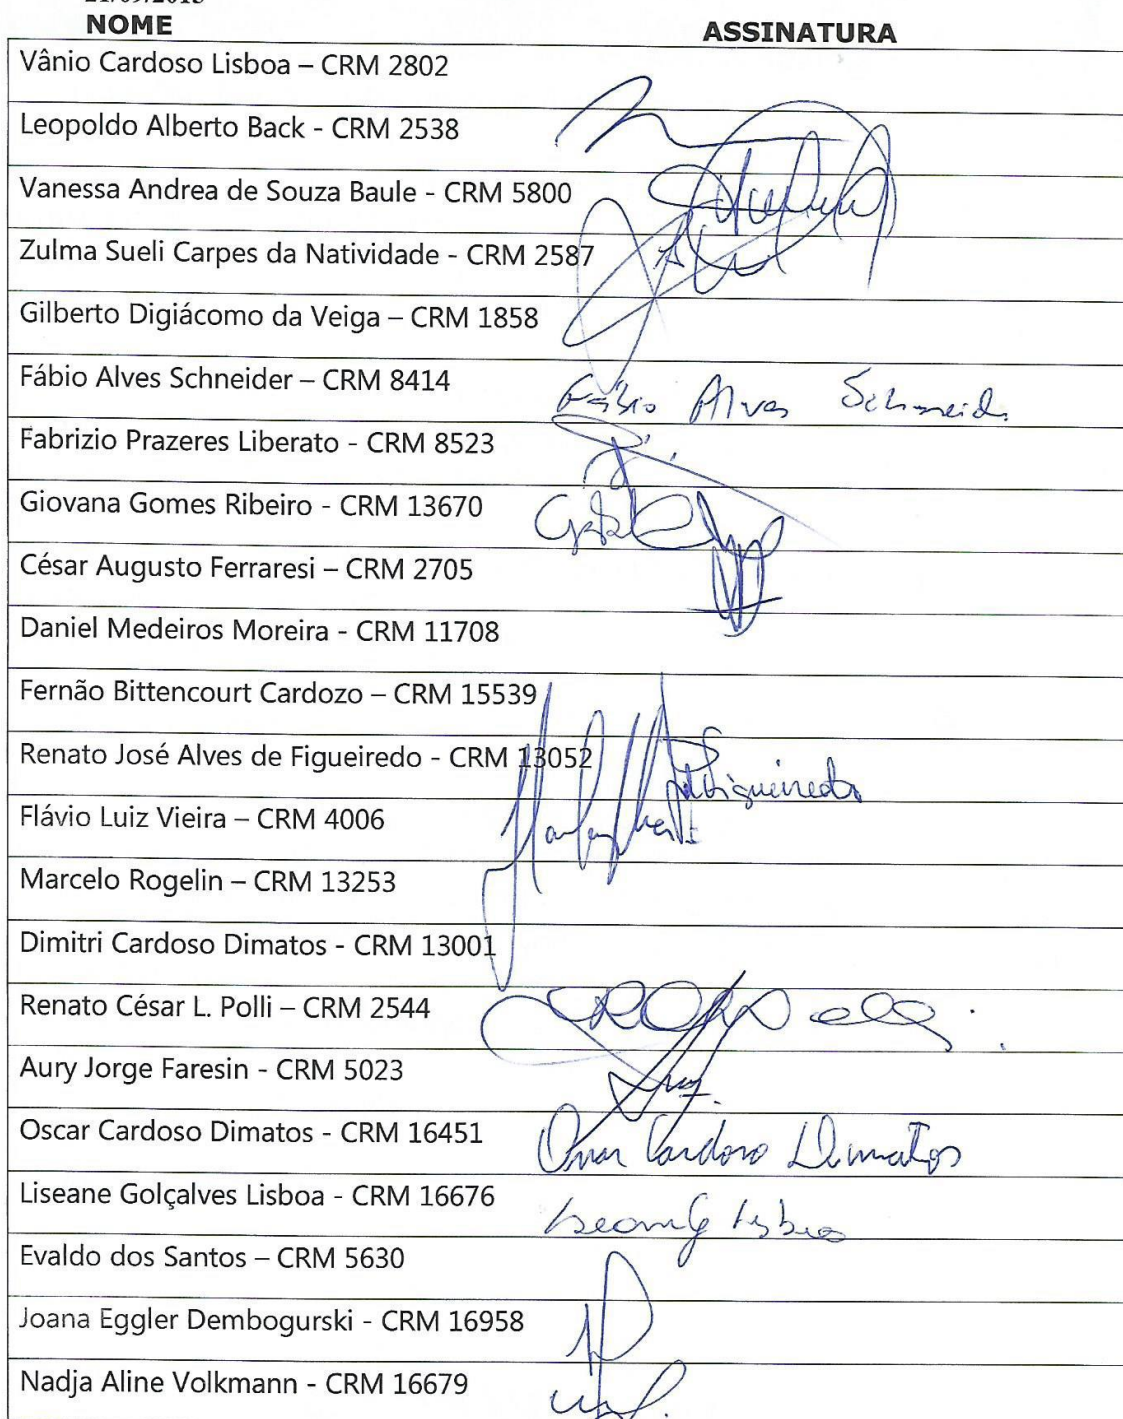 21/09/2015
NOME ASSINATURA
Vânio Cardoso Lisboa – CRM 2802
Leopoldo Alberto Back - CRM 2538
Vanessa Andrea de Souza Baule - CRM 5800
Zulma Sueli Carpes da Natividade - CRM 2587
Gilberto Digiácomo da Veiga – CRM 1858
Fábio Alves Schneider – CRM 8414 Fábio Alves Schneider
Fabrizio Prazeres Liberato - CRM 8523
Giovana Gomes Ribeiro - CRM 13670
César Augusto Ferraresi – CRM 2705
Daniel Medeiros Moreira - CRM 11708
Fernão Bittencourt Cardozo – CRM 15539
Renato José Alves de Figueiredo - CRM 13052 Figueiredo
Flávio Luiz Vieira – CRM 4006
Marcelo Rogelin – CRM 13253
Dimitri Cardoso Dimatos - CRM 13001
Renato César L. Polli – CRM 2544
Aury Jorge Faresin - CRM 5023
Oscar Cardoso Dimatos - CRM 16451 Oscar Cardoso Dimatos
Liseane Golçalves Lisboa - CRM 16676
Evaldo dos Santos – CRM 5630
Joana Eggler Dembogurski - CRM 16958
Nadja Aline Volkmann - CRM 16679